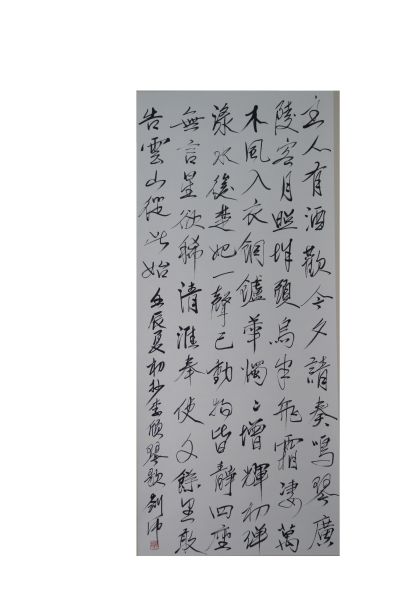 主人有酒歡今夕請奏鳴琴廣
陵客月照城頭烏半飛霜凄萬
木風入衣銅鑪華燭〻增輝初彈
淥水後楚妃一聲已動物皆靜四座
無言星欲稀清淮奉使千餘里敢
告雲山從此始 壬辰夏初抄李頎琴歌